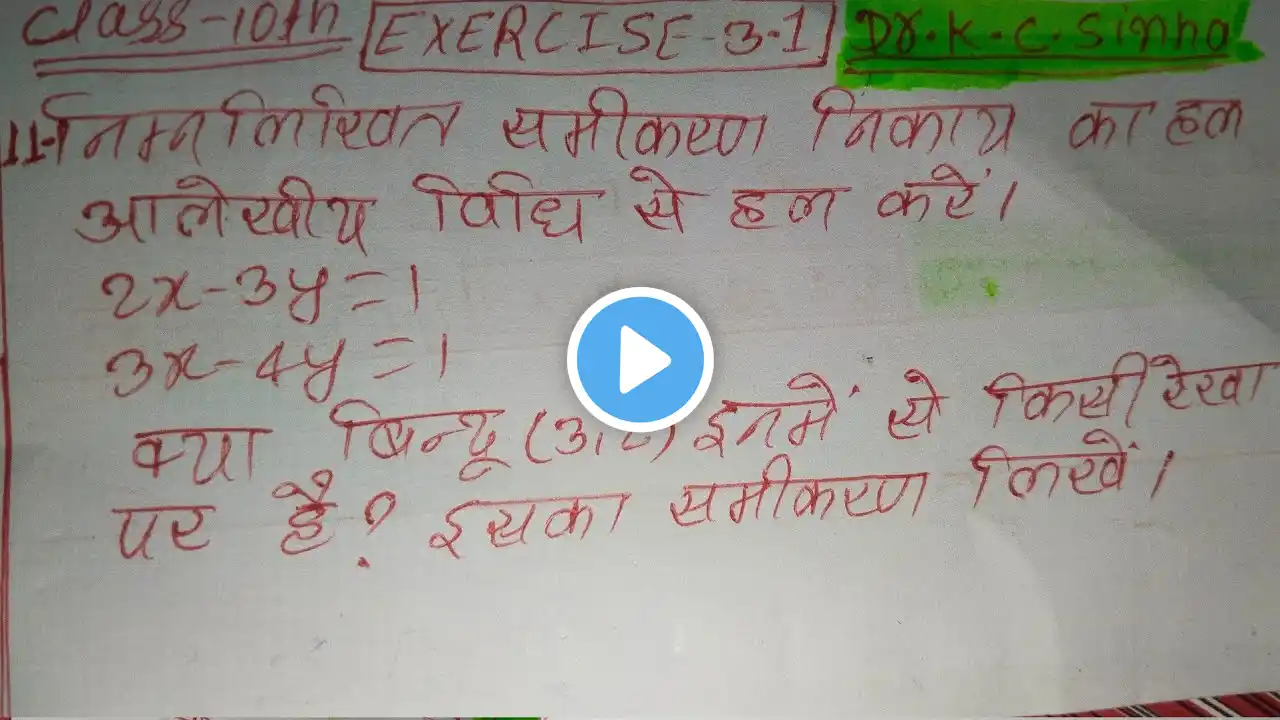 Class-10th EXERCISE-3.1 Dr. K. C. Sinha
11- निम्नलिखित समीकरण निकाय का हल
आलेखीय विधि से हल करें।
2x-3y=1
3x-4y=1
क्या बिन्दू इनमें से किसी रेखा
पर है? इसका समीकरण लिखें।